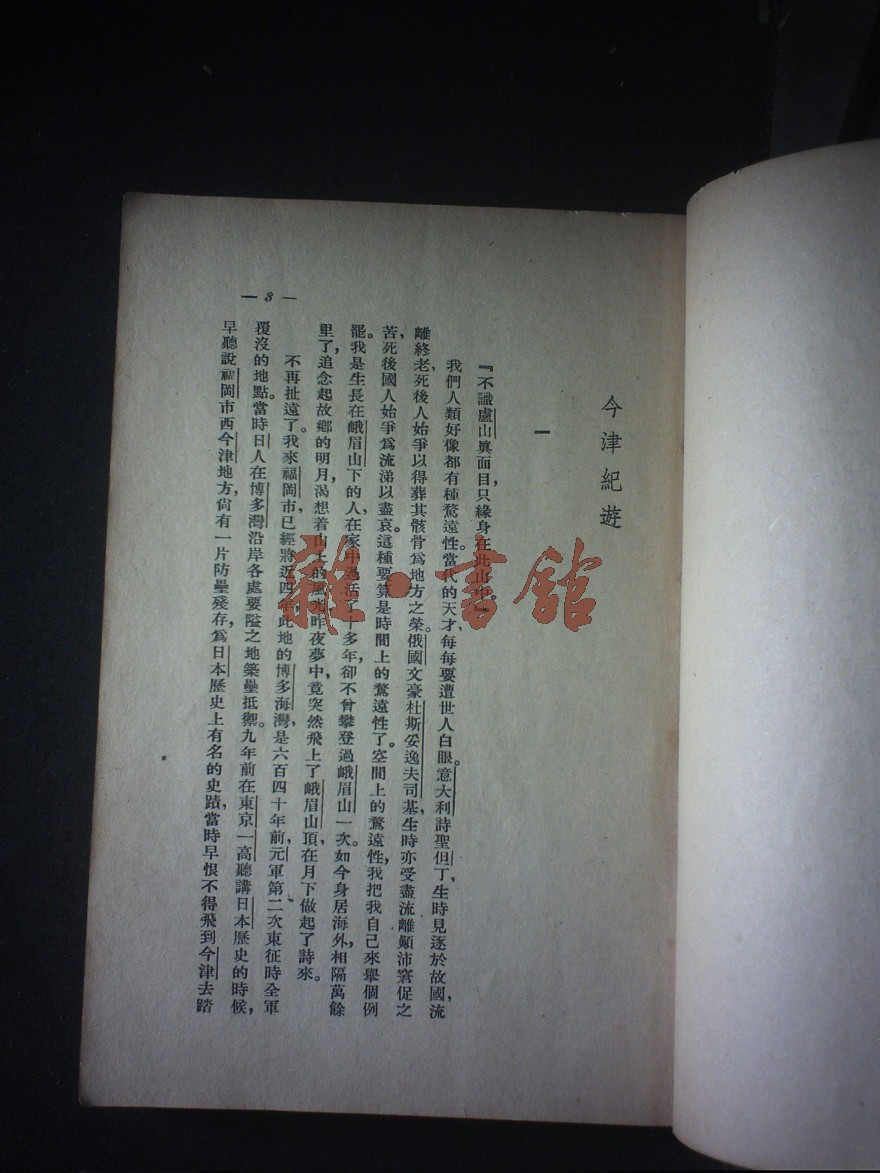 今津紀遊
一
『不識盧山眞面目，只緣身在此山中。』
我們人類好像都有種騖遠性當代的天才每每要遭世人白眼。意大利詩聖但丁，生時見逐於故國，流
離終老，死後人始爭以得葬其骸骨爲地方之榮。俄國文豪杜斯妥逸夫司基，生時亦受盡流離顚沛窘促之
苦，死後國人始爭爲流涕以盡哀。這種要算是時間上的騖遠性了。空間上的騖遠性，我把我自己來舉個例
罷。我是生長在峨眉山下的人，在家中過活了十多年，卻不曾攀登過峨眉山一次。如今身居海外，相隔萬餘
里了，追念起故鄉的明月，渴想着山上的風光，昨夜夢中，竟突然飛上了峨眉山頂，在月下做起了詩來。
不再扯遠了。我來福岡市已經將近四年，此地的博多海灣，是六百四十年前，元軍第二次東征時全軍
覆沒的地點。當時日人在博多灣沿岸各處要隘之地築壘抵禦。九年前在東京一高聽講日本歷史的時候，
早聽說福岡市西今津地方，尙有一片防壘殘存，爲日本歷史上有名的史蹟，當時早恨不得飛到今津去踏
— 3 —
雜·書館